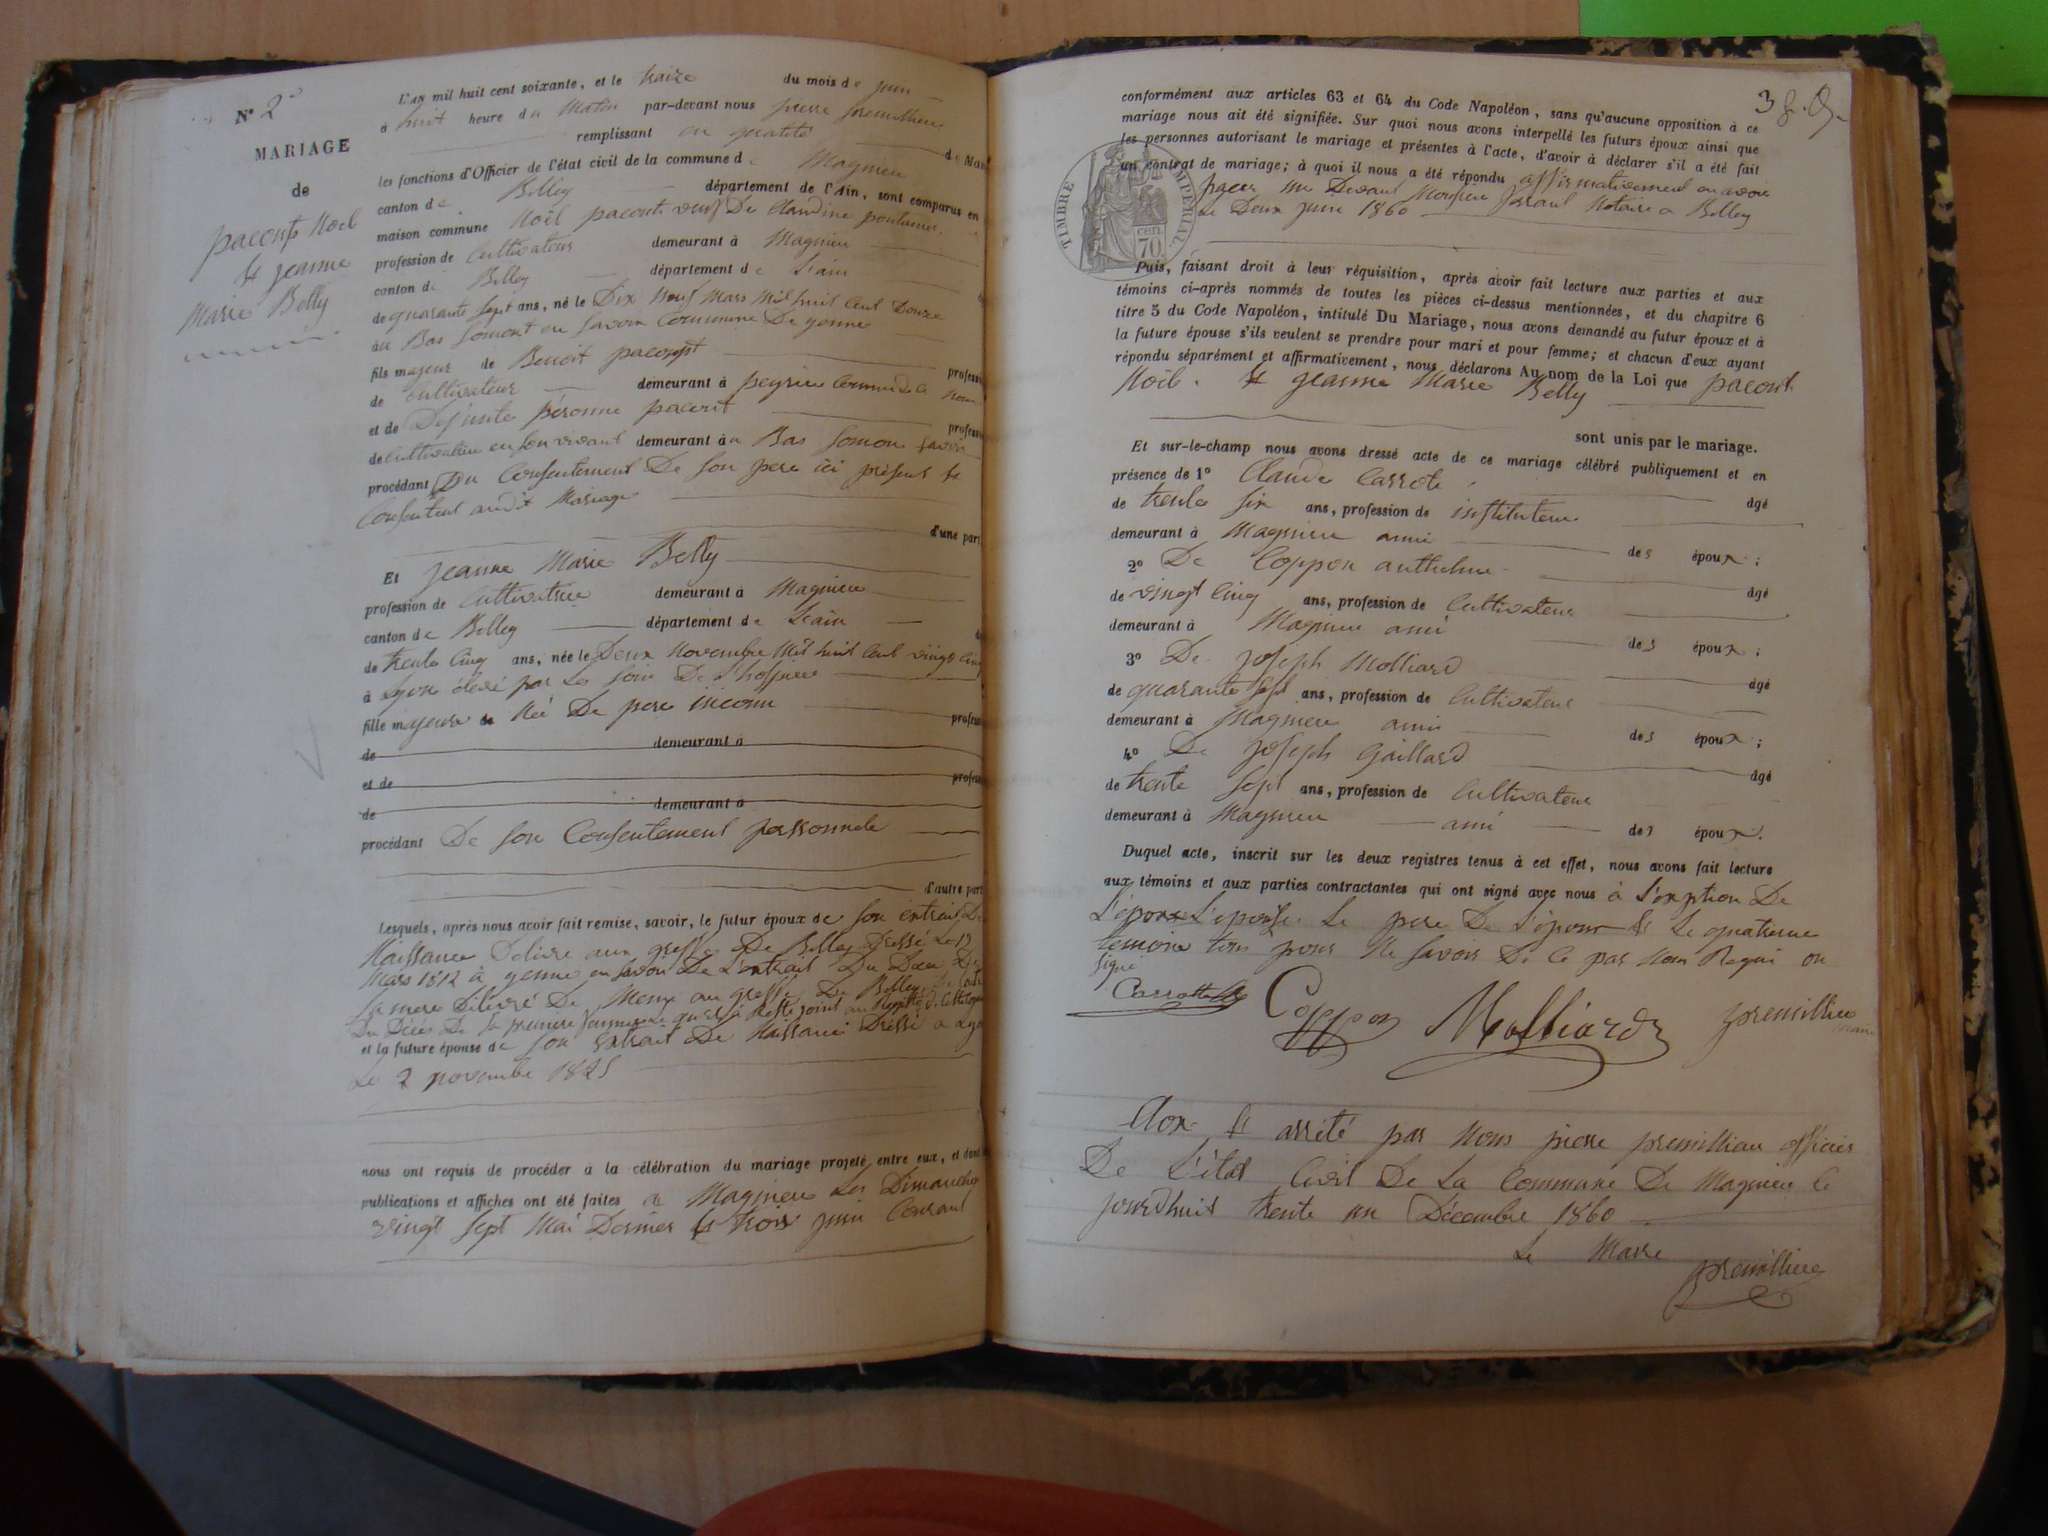 N° 2
MARIAGE
de
pacout Noel
et jeanne
Marie Belly
L'an mil huit cent soixante, et le traize du mois de juin
à huit heure du Matin par-devant nous pierre premillieu
remplissant en qualité de Maire
les fonctions d'Officier de l'état civil de la commune de Magnieu
canton de Belley département de l'Ain, sont comparus en
maison commune Noël pacout veuf De Claudine
profession de Cultivateur demeurant à Magnieu
canton de Belley département de L'ain
de quarante sept ans, né le Dix Neuf Mars Mil huit Cent Douze
au Bas Somont en Savoix Commune De yenne
fils majeur de Benoit pacoupt profess
de Cultivateur demeurant à peyrieu
et de Défunte péronne pacout profess
de Cultivatrice en son vivant demeurant au Bas Somon Savoi
procédant Du Consentement De Son pere ici présent et
Consentent audit Mariage
d'une part
Et Jeanne Marie Belly
profession de Cultivatrice demeurant à Magnieu
canton de Belley département de L'ain
de trente Cinq ans, née le Deux Novembre Mil huit Cent vingt Cinq
à Lyon élevé par Les Soin De L'hospice
fille majeure de Née De pere inconu profess
de demeurant à
et de profess
de demeurant à
procédant De Son Consentement personnele
d'autre part
Lesquels, après nous avoir fait remise, savoir, le futur époux de Son extrait De
Naissance Délivré aux greffe De Belley Dressé Le 19
Mars 1812 à yenne en Savoi De L'extrait Du Décè De
Sa mere Délivré De Meme au greffe De Belley
Du Décès De Sa premiere femme
et la future épouse de Son Extrait De Naissance Dréssé a Lyon
Le 2 novembre 1825
nous ont requis de procéder à la célébration du mariage projeté entre eux, et dont
publications et affiches ont été faites a Magnieu Les Dimanche
vingt Sept Mai Dernier et trois juin Courant
38.
conformément aux articles 63 et 64 du Code Napoléon, sans qu'aucune opposition à ce
mariage nous ait été signifiée. Sur quoi nous avons interpellé les futurs époux ainsi que
les personnes autorisant le mariage et présentes à l'acte, d'avoir à déclarer s'il a été fait
un contrat de mariage; à quoi il nous a été répondu affirmativement en avoir
passer un Devant Monsieur Notaire a Belley
Le Deux juin 1860
TIMBRE IMPERIAL
cen.
70
Puis, faisant droit à leur réquisition, après avoir fait lecture aux parties et aux
témoins ci-après nommés de toutes les pièces ci-dessus mentionnées, et du chapitre 6
titre 5 du Code Napoléon, intitulé Du Mariage, nous avons demandé au futur époux et à
la future épouse s'ils veulent se prendre pour mari et pour femme; et chacun d'eux ayant
répondu séparément et affirmativement, nous déclarons Au nom de la Loi que pacout
Noël. et jeanne Marie Belly
sont unis par le mariage.
Et sur-le-champ nous avons dressé acte de ce mariage célébré publiquement et en
présence de 1° Claude Carrote âgé
de trente Six ans, profession de instituteur
demeurant à Magnieu ami des époux;
2° De Coppon anthelme âgé
de vingt Cinq ans, profession de Cultivateur
demeurant à Magnieu ami des époux;
3° De Joseph Molliard âgé
de quarante Sept ans, profession de Cultivateur
demeurant à Magnieu ami des époux;
4° De Joseph Gaillard âgé
de trente Sept ans, profession de Cultivateur
demeurant à Magnieu ami des époux.
Duquel acte, inscrit sur les deux registres tenus à cet effet, nous avons fait lecture
aux témoins et aux parties contractantes qui ont signé avec nous à L'exption De
L'époux L'epouse. Le pere De L'époux et Le quatrieme
temoins tous pour Ne Savoir De Ce par Nous Requi on
signé
Carrotte Coppon Molliard premillieu
maire
Clore et arrété par Nous pierre premillieu officier
De L'état Civil De La Commune De Magnieu Ce
jourd'huit trente un Décembre 1860
Le Maire
premillieu